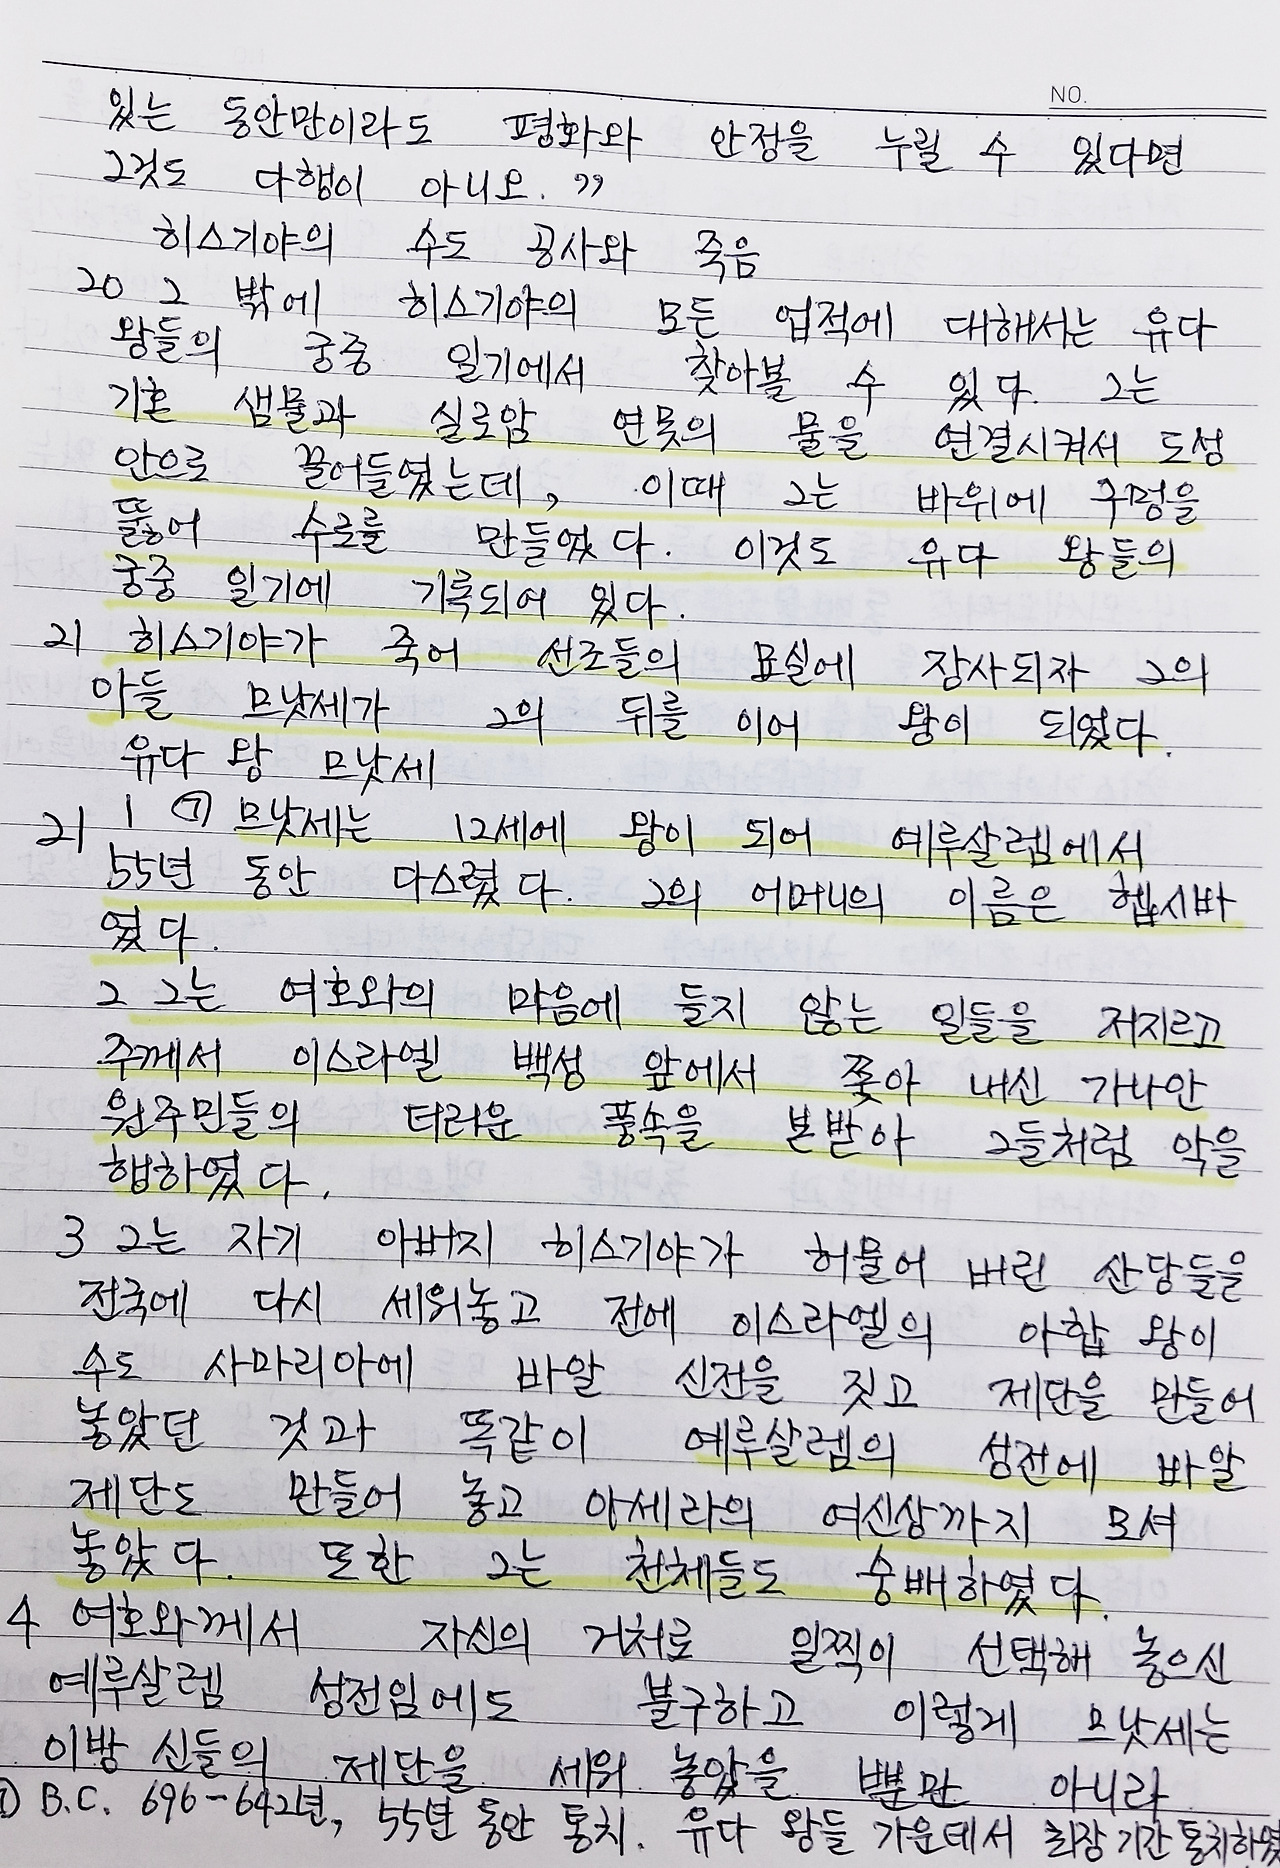 NO.
있는 동안만이라도 평화와 안정을 누릴 수 있다면
그것도 다행이 아니오."
히스기야의 수도 공사와 죽음
20 그 밖에 히스기야의 모든 업적에 대해서는 유다
왕들의 궁중 일기에서 찾아볼 수 있다. 그는
기혼 샘물과 실로암 연못의 물을 연결시켜서 도성
안으로 끌어들였는데, 이때 그는 바위에 구멍을
뚫어 수로를 만들었다. 이것도 유다 왕들의
궁중 일기에 기록되어 있다.
21 히스기야가 죽어 선조들의 묘실에 장사되자 그의
아들 므낫세가 그의 뒤를 이어 왕이 되었다.
유다 왕 므낫세
21 1 ㉠ 므낫세는 12세에 왕이 되어 예루살렘에서
55년 동안 다스렸다. 그의 어머니의 이름은 헵시바
였다.
2 그는 여호와의 마음에 들지 않는 일들을 저지르고
주께서 이스라엘 백성 앞에서 쫓아 내신 가나안
원주민들의 더러운 풍속을 본받아 그들처럼 악을
행하였다.
3 그는 자기 아버지 히스기야가 허물어 버린 산당들을
전국에 다시 세워놓고 전에 이스라엘의 아합 왕이
수도 사마리아에 바알 신전을 짓고 제단을 만들어
놓았던 것과 똑같이 예루살렘의 성전에 바알
제단도 만들어 놓고 아세라의 여신상까지 모셔
놓았다. 또한 그는 천체들도 숭배하였다.
4 여호와께서 자신의 거처로 일찍이 선택해 놓으신
예루살렘 성전임에도 불구하고 이렇게 므낫세는
이방 신들의 제단을 세워 놓았을 뿐만 아니라
㉠ B.C. 696-642년, 55년 동안 통치. 유다 왕들 가운데서 최장 기간 통치하였